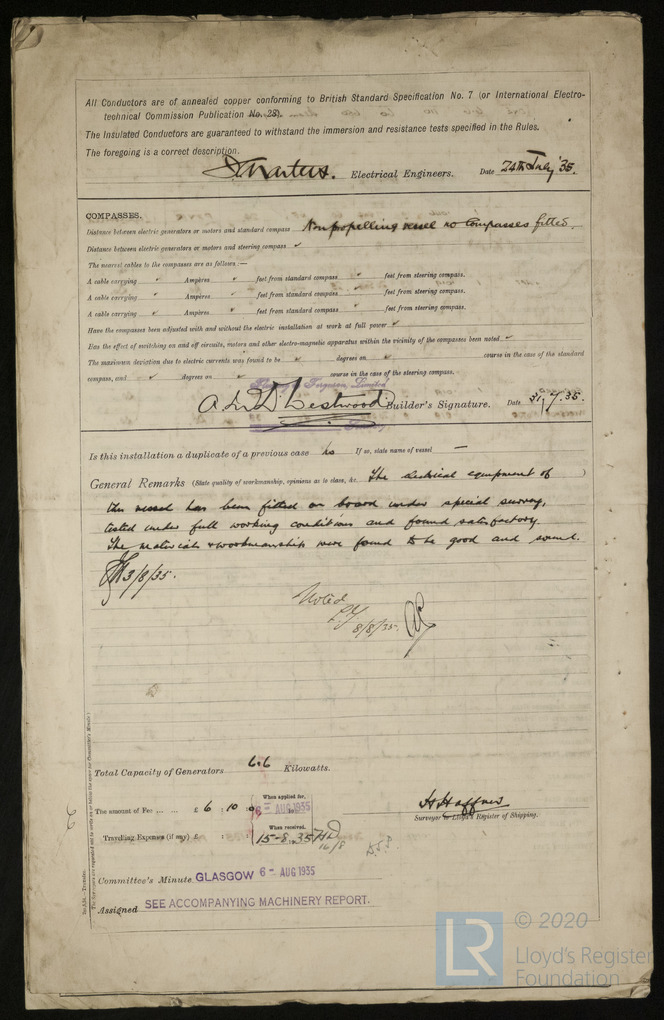 All Conductors are of annealed copper conforming to British Standard Specification No. 7 (or International Electro-
technical Commission Publication No. 28).
The Insulated Conductors are guaranteed to withstand the immersion and resistance tests specified in the Rules.
The foregoing is a correct description.
Electrical Engineers. Date 24th July '35.
COMPASSES.
Distance between electric generators or motors and standard compass Non propelling vessel no Compasses fitted.
Distance between electric generators or motors and steering compass ✓
The nearest cables to the compasses are as follows:—
A cable carrying ✓ Ampères ✓ feet from standard compass ✓ feet from steering compass.
A cable carrying ✓ Ampères ✓ feet from standard compass ✓ feet from steering compass.
A cable carrying ✓ Ampères ✓ feet from standard compass ✓ feet from steering compass.
Have the compasses been adjusted with and without the electric installation at work at full power ✓
Has the effect of switching on and off circuits, motors and other electro-magnetic apparatus within the vicinity of the compasses been noted ✓
The maximum deviation due to electric currents was found to be ✓ degrees on ✓ course in the case of the standard
compass, and ✓ degrees on ✓ course in the case of the steering compass.
Ferguson, Limited
Westwood Builder's Signature. Date 31/7/35.
Is this installation a duplicate of a previous case no If so, state name of vessel —
General Remarks (State quality of workmanship, opinions as to class, &c. The electrical equipment of
this vessel has been fitted on board under special survey,
tested under full working conditions and found satisfactory.
The materials & workmanship were found to be good and sound.
3/8/35.
Noted
8/8/35.
Total Capacity of Generators 6.6 Kilowatts.
When applied for,
The amount of Fee ... ... £ 6 : 10 : 0 6 - AUG 1935
When received.
Travelling Expenses (if any) £ : : 15-8-35
16/8
H Haffner
Surveyor to Lloyd's Register of Shipping.
Committee's Minute GLASGOW 6 - AUG 1935
Assigned SEE ACCOMPANYING MACHINERY REPORT.
LR
© 2020
Lloyd's Register
Foundation